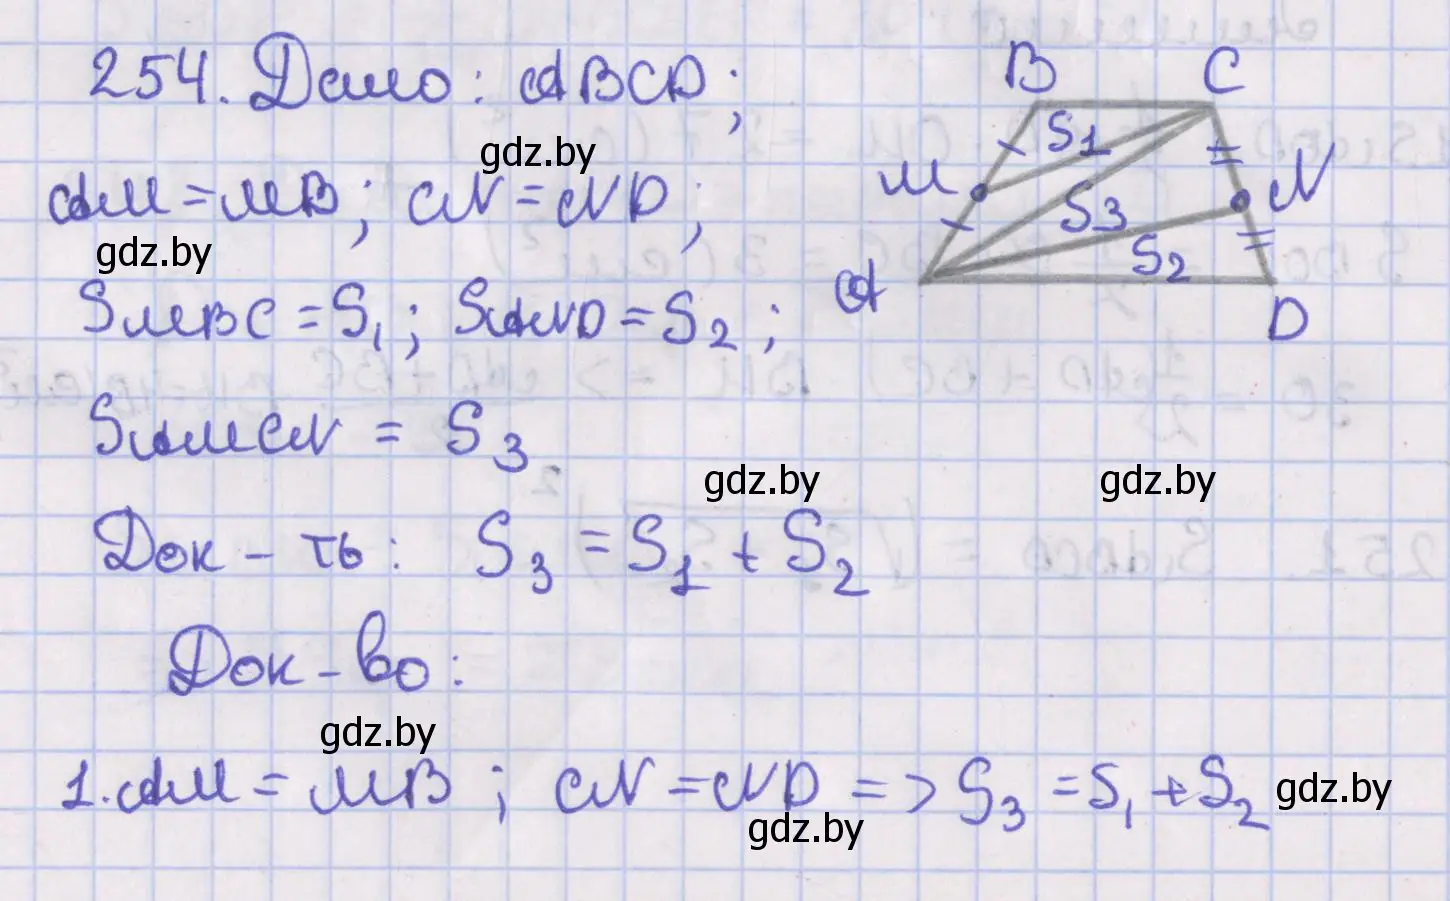 254. Дано: ABCD;
gdz.by
AM = MB; CN = ND;
gdz.by
S MBC = S1; S AND = S2;
S AMCN = S3
gdz.by
gdz.by
Док-ть: S3 = S1 + S2
Док-во:
gdz.by
1. AM = MB; CN = ND => S3 = S1 + S2
gdz.by
gdz.by
B C
S1
M N
S3
S2
A
D